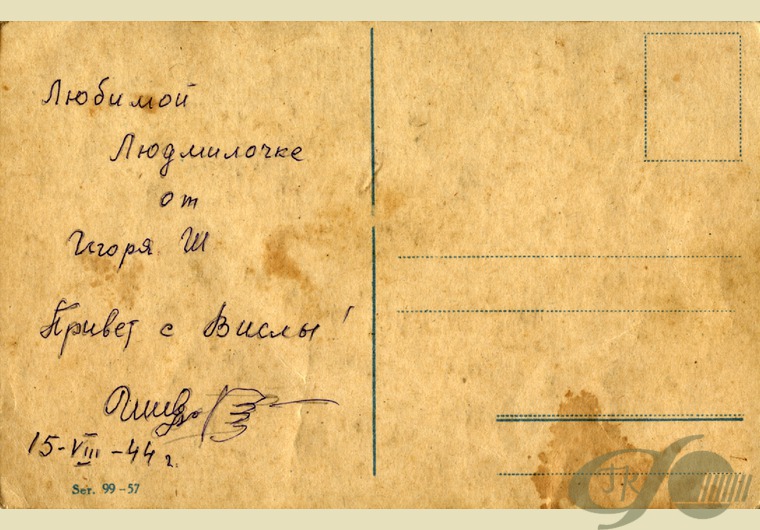 Любимой
Людмилочке
от
Игоря Ш
Привет с Вислы!
15-VIII-44 г.
Ser. 99-57